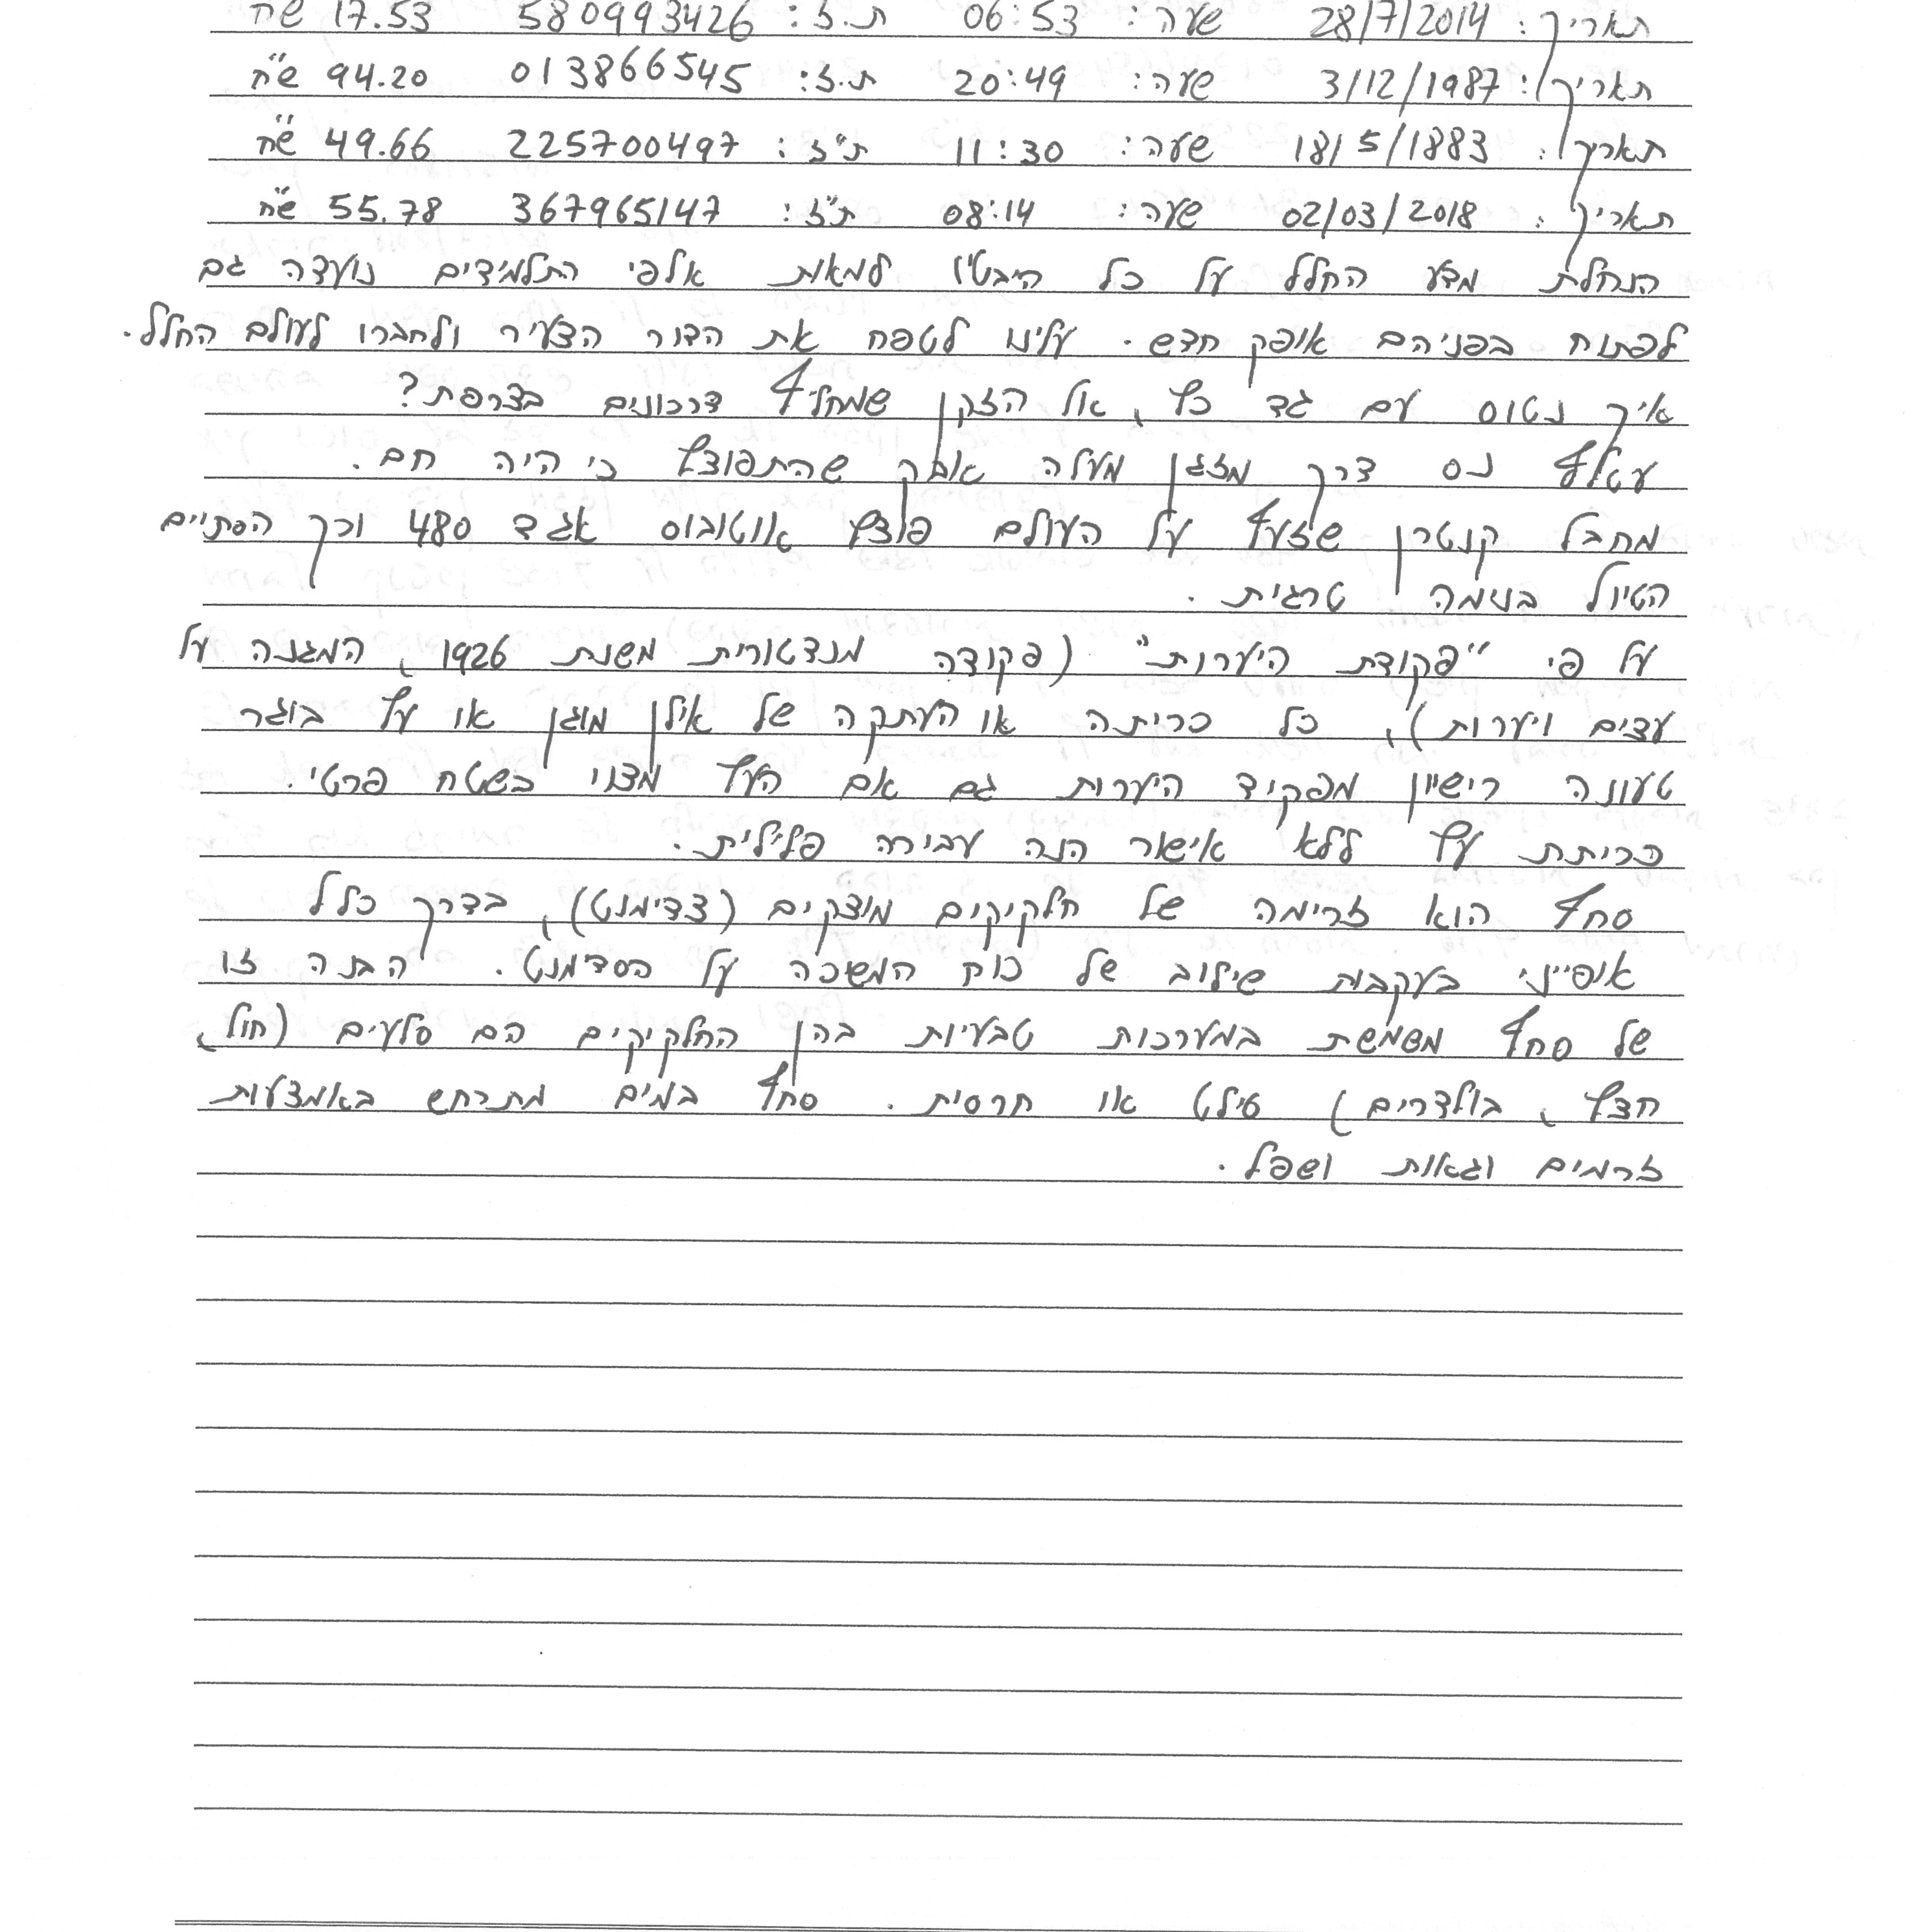 תאריך: 28/7/2014 שעה: 06:53 ת.ז: 580993426 17.53 ש"ח
תאריך: 3/12/1987 שעה: 20:49 ת.ז: 013866545 94.20 ש"ח
תאריך: 18/5/1883 שעה: 11:30 ת"ז: 225700497 49.66 ש"ח
תאריך: 02/03/2018 שעה: 08:14 ת"ז: 367965147 55.78 ש"ח
הנחלת מדע החלל על כל היבטיו למאות אלפי התלמידים נועדה גם
לפתוח בפניהם אופק חדש. עלינו לטפח את הדור הצעיר ולחברו לעולם החלל.
איך נטוס עם גד כץ, אל הזקן שמחליף דרכונים בצרפת?
עטלף נס דרך מזגן מעלה אבק שהתפוצץ כי היה חם.
מחבל קנטרן שזעף על העולם פוצץ אוטובוס אגד 480 וכך הסתיים
הטיול בנימה טרגית.
על פי "פקודת היערות" (פקודה מנדטורית משנת 1926, המגנה על
עצים ויערות), כל כריתה או העתקה של אילן מוגן או עץ בוגר
טעונה רישיון מפקיד היערות גם אם העץ מצוי בשטח פרטי.
כריתת עץ ללא אישור הנה עבירה פלילית.
סחף הוא זרימה של חלקיקים מוצקים (צדימנט), בדרך כלל
אופייני בעקבות שילוב של כוח המשיכה על הסדימנט. הבנה זו
של סחף משמשת במערכות טבעיות בהן החלקיקים הם סלעים (חול,
חצץ, בולדרים) טילט או חרסית. סחף במים מתרחש באמצעות
זרמים וגאות ושפל.